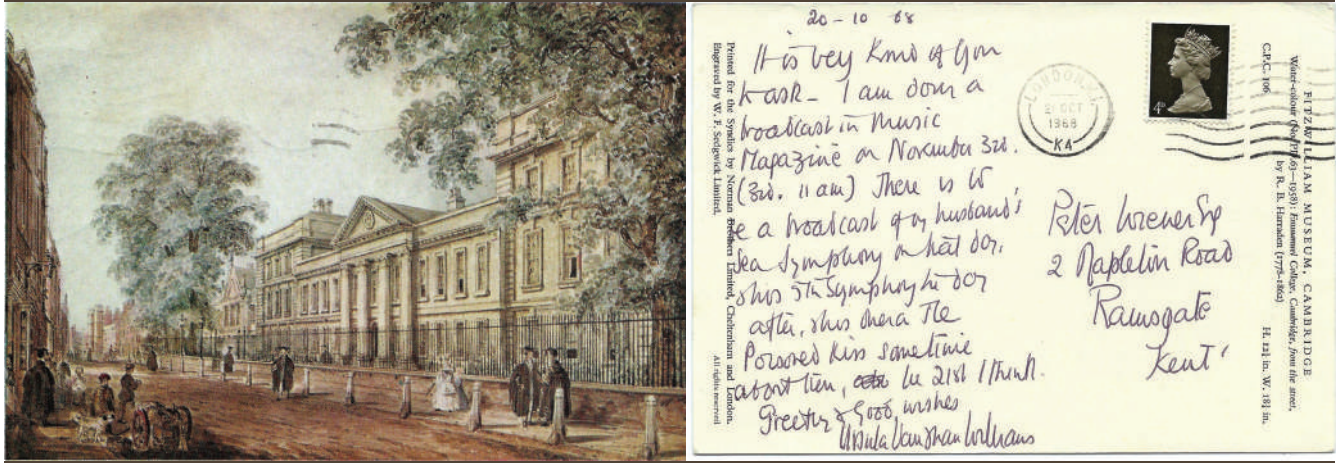 20-10 68
It is very kind of you
to ask - I am doing a
broadcast in Music
Magazine on November 3rd.
(3rd. 11 am) There is to
be a broadcast of my husband's
Sea Symphony on that day,
& his 5th Symphony the day
after, & his opera The
Poisoned Kiss sometime
about then, the 21st I think.
Greetings & good wishes
Ursula Vaughan Williams
LONDON
21 OCT
1968
KA
4D
Peter
2 Napleton Road
Ramsgate
Kent
Printed for the Syndics by Norman Brothers Limited, Cheltenham and London.
Engraved by W. F. Sedgwick Limited.
All rights reserved
FITZWILLIAM MUSEUM, CAMBRIDGE
Water-colour (No. PD.63—1958): Emmanuel College, Cambridge, from the street,
by R. B. Harraden (1778-1862)
C.P.C. 106
H. 12¼ in. W. 18¼ in.